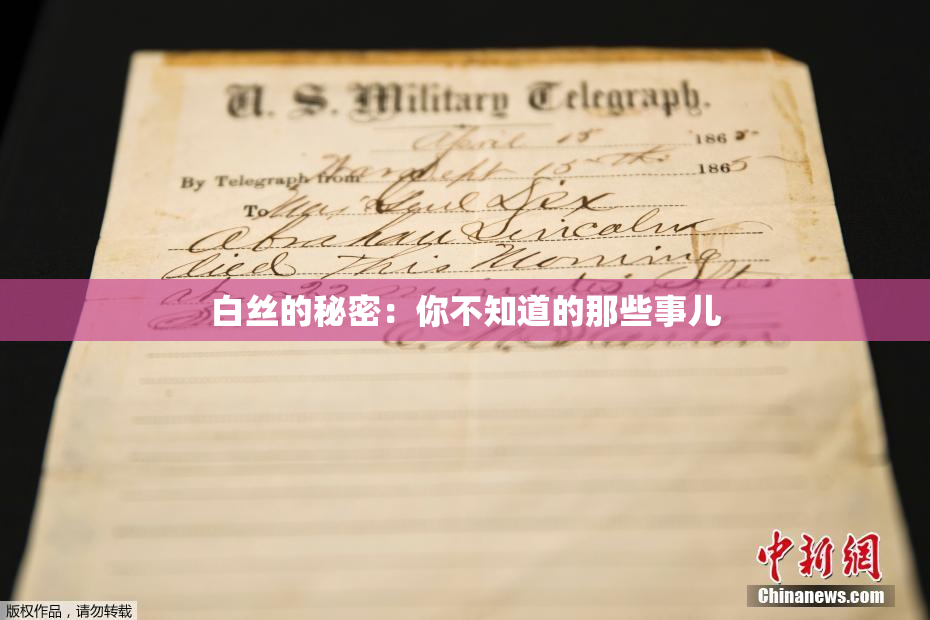 U. S. Military Telegraph.
April 15 1865
By Telegraph from War Dept 15th 1865
To Maj Genl Dix
Abraham Lincoln
died this Morning
at 22 minutes after
白丝的秘密：你不知道的那些事儿
E. M. Stanton
中新网
Chinanews.com
版权作品，请勿转载